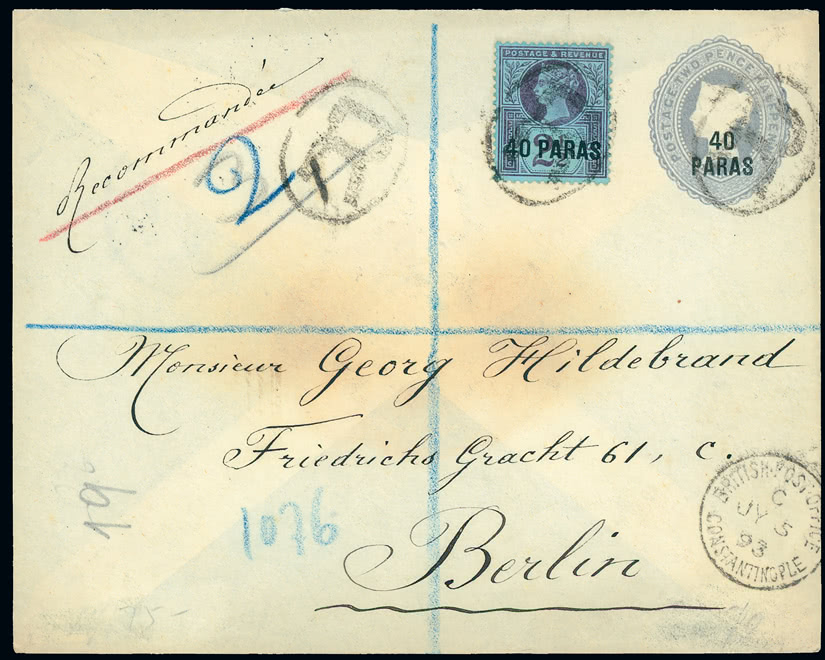 POSTAGE & REVENUE
40 PARAS
2½
POSTAGE TWO PENCE HALFPENNY
40
PARAS
Recommandée
2
R
Monsieur Georg Hildebrand
Friedrichs Gracht 61, c.
1076
Berlin
BRITISH·POST·OFFICE
C
JY 5
93
CONSTANTINOPLE